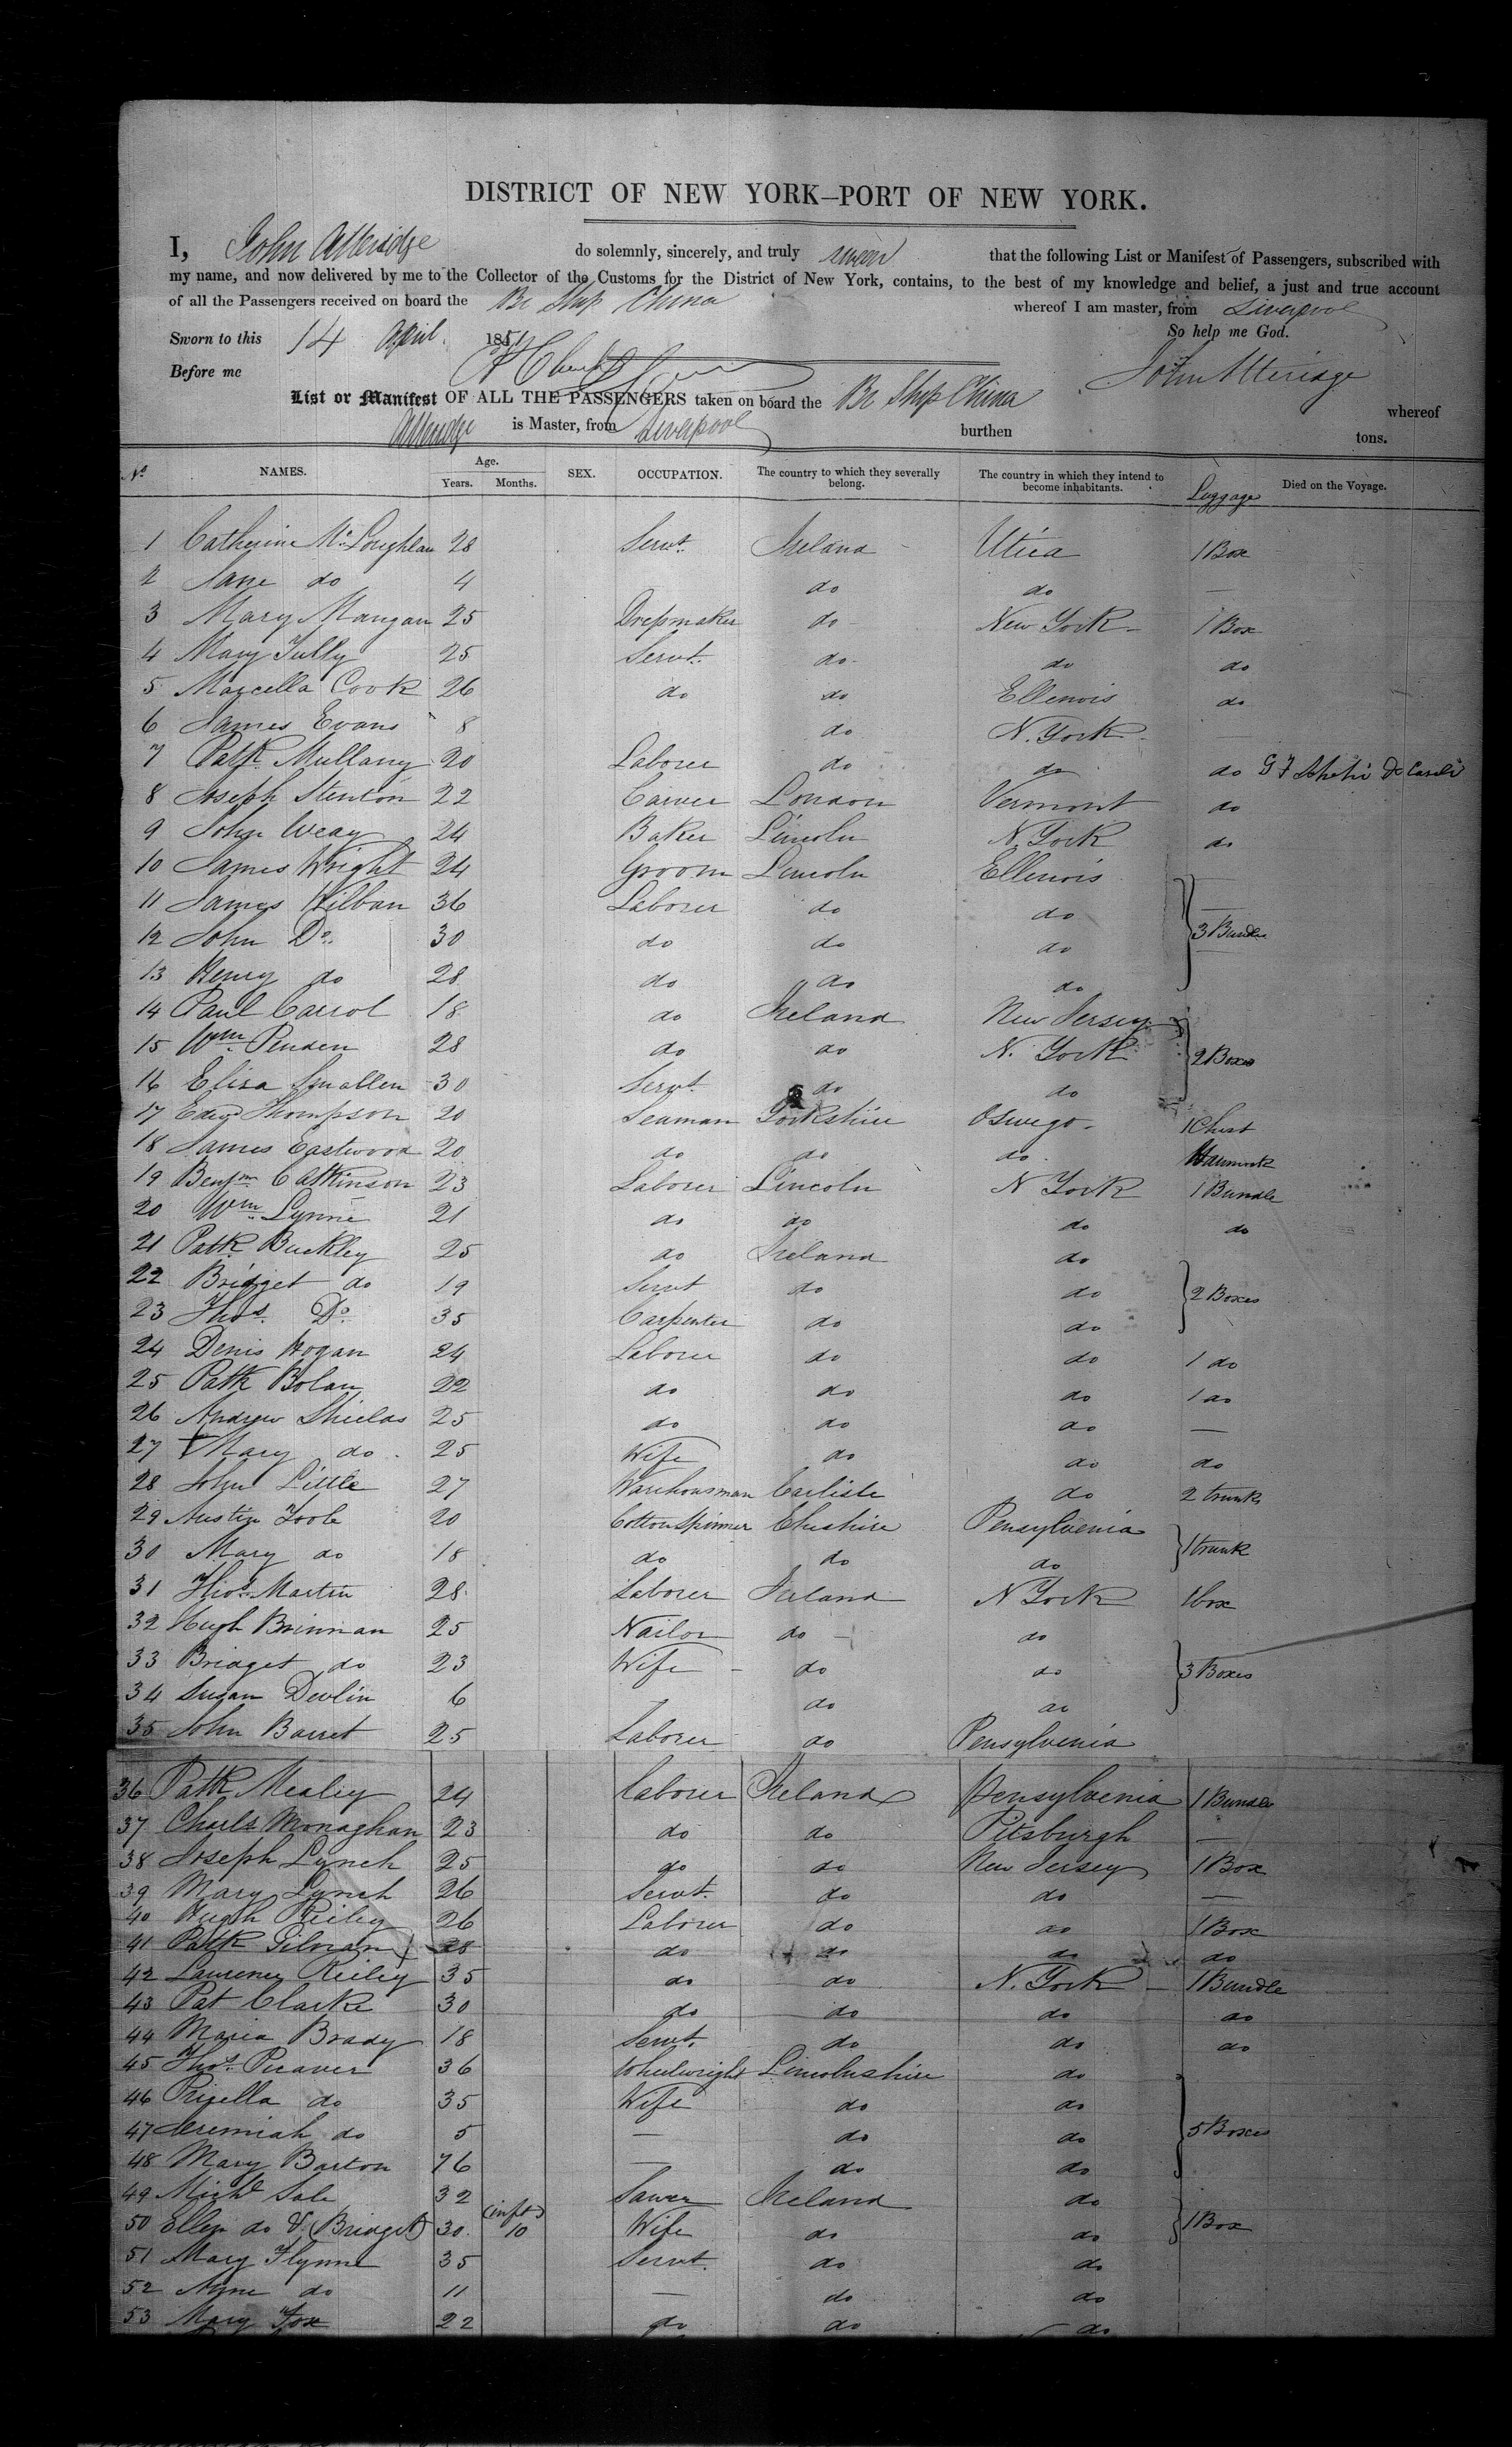 DISTRICT OF NEW YORK—PORT OF NEW YORK.
I, John Atteridge do solemnly, sincerely, and truly swear that the following List or Manifest of Passengers, subscribed with
my name, and now delivered by me to the Collector of the Customs for the District of New York, contains, to the best of my knowledge and belief, a just and true account
of all the Passengers received on board the Br Ship China whereof I am master, from Liverpool
Sworn to this 14 April 1851 So help me God.
Before me John Atteridge
List or Manifest OF ALL THE PASSENGERS taken on board the Br Ship China whereof
Atteridge is Master, from Liverpool burthen tons.
No. NAMES. Age. Years. Months. SEX. OCCUPATION. The country to which they severally belong. The country in which they intend to become inhabitants. Luggage Died on the Voyage.
1 Catherine McLoughlan 28 Servt. Ireland Utica 1 Box
2 Jane do 4 do do —
3 Mary Mangan 25 Dressmaker do New York 1 Box
4 Mary Tully 25 Servt. do do do
5 Marcella Cook 26 do do Ellenois do
6 James Evans 8 do N. York —
7 Patk. Mullany 20 Laborer do do do
8 Joseph Stenton 22 Carver London Vermont do
9 John Weay 24 Baker Lincoln N. York do
10 James Wright 24 Groom Lincoln Ellenois —
11 James Kilban 36 Laborer do do —
12 John Do. 30 do do do 3 Bundle
13 Henry do 28 do do do
14 Paul Carrol 18 do Ireland New Jersey
15 Wm. Penden 28 do do N. York 2 Boxes
16 Eliza Smallen 30 Servt. do do
17 Edwd Thompson 20 Seaman Yorkshire Oswego 1 Chest
18 James Eastwood 20 do do do Hammock
19 Benjm. C Atkinson 23 Laborer Lincoln N York 1 Bundle
20 Wm. Lynne 21 do do do do
21 Patk. Buckley 25 do Ireland do
22 Bridget do 19 Servt do do 2 Boxes
23 Thos. Do. 35 Carpenter do do
24 Denis Hogan 24 Laborer do do 1 do
25 Patk Bolan 22 do do do 1 do
26 Andrew Shields 25 do do do —
27 Mary do 25 Wife do do do
28 John Little 27 Warehousman Carlisle do 2 trunks
29 Austin Toole 20 Cotton Spinner Cheshire Pensylvenia
30 Mary do 18 do do do 1 trunk
31 Thos. Martin 28 Laborer Ireland N York 1 box
32 Hugh Brinnan 25 Nailor do do
33 Bridget do 23 Wife do do 3 Boxes
34 Susan Devlin 6 — do do
35 John Barret 25 Laborer do Pensylvenia
36 Patk Mealey 24 Laborer Ireland Pensylvenia 1 Bundle
37 Charls Monaghan 23 do do Pitsburgh —
38 Joseph Lynch 25 do do New Jersey 1 Box
39 Mary Lynch 26 Servt. do do —
40 Hugh Reiley 26 Laborer do do 1 Box
41 Patk Gilman 28 do do do do
42 Laurence Reiley 35 do do N. York 1 Bundle
43 Pat Clarke 30 do do do do
44 Maria Brady 18 Servt. do do do
45 Thos. Picaver 36 Wheelwright Lincolnshire do
46 Prisella do 35 Wife do do
47 Jeremiah do 5 — do do 5 Boxes
48 Mary Barton 76 — do do
49 Michl Sale 32 Sawer Ireland do
50 Ellen do & (Bridget) 30 (inft) 10 Wife do do 1 Box
51 Mary Flynne 35 Servt. do do
52 Anne do 11 — do do
53 Mary Fox 22 do do do